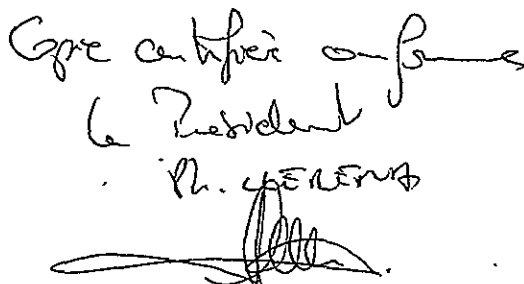 Copie certifiée conforme
Le Président
Ph.